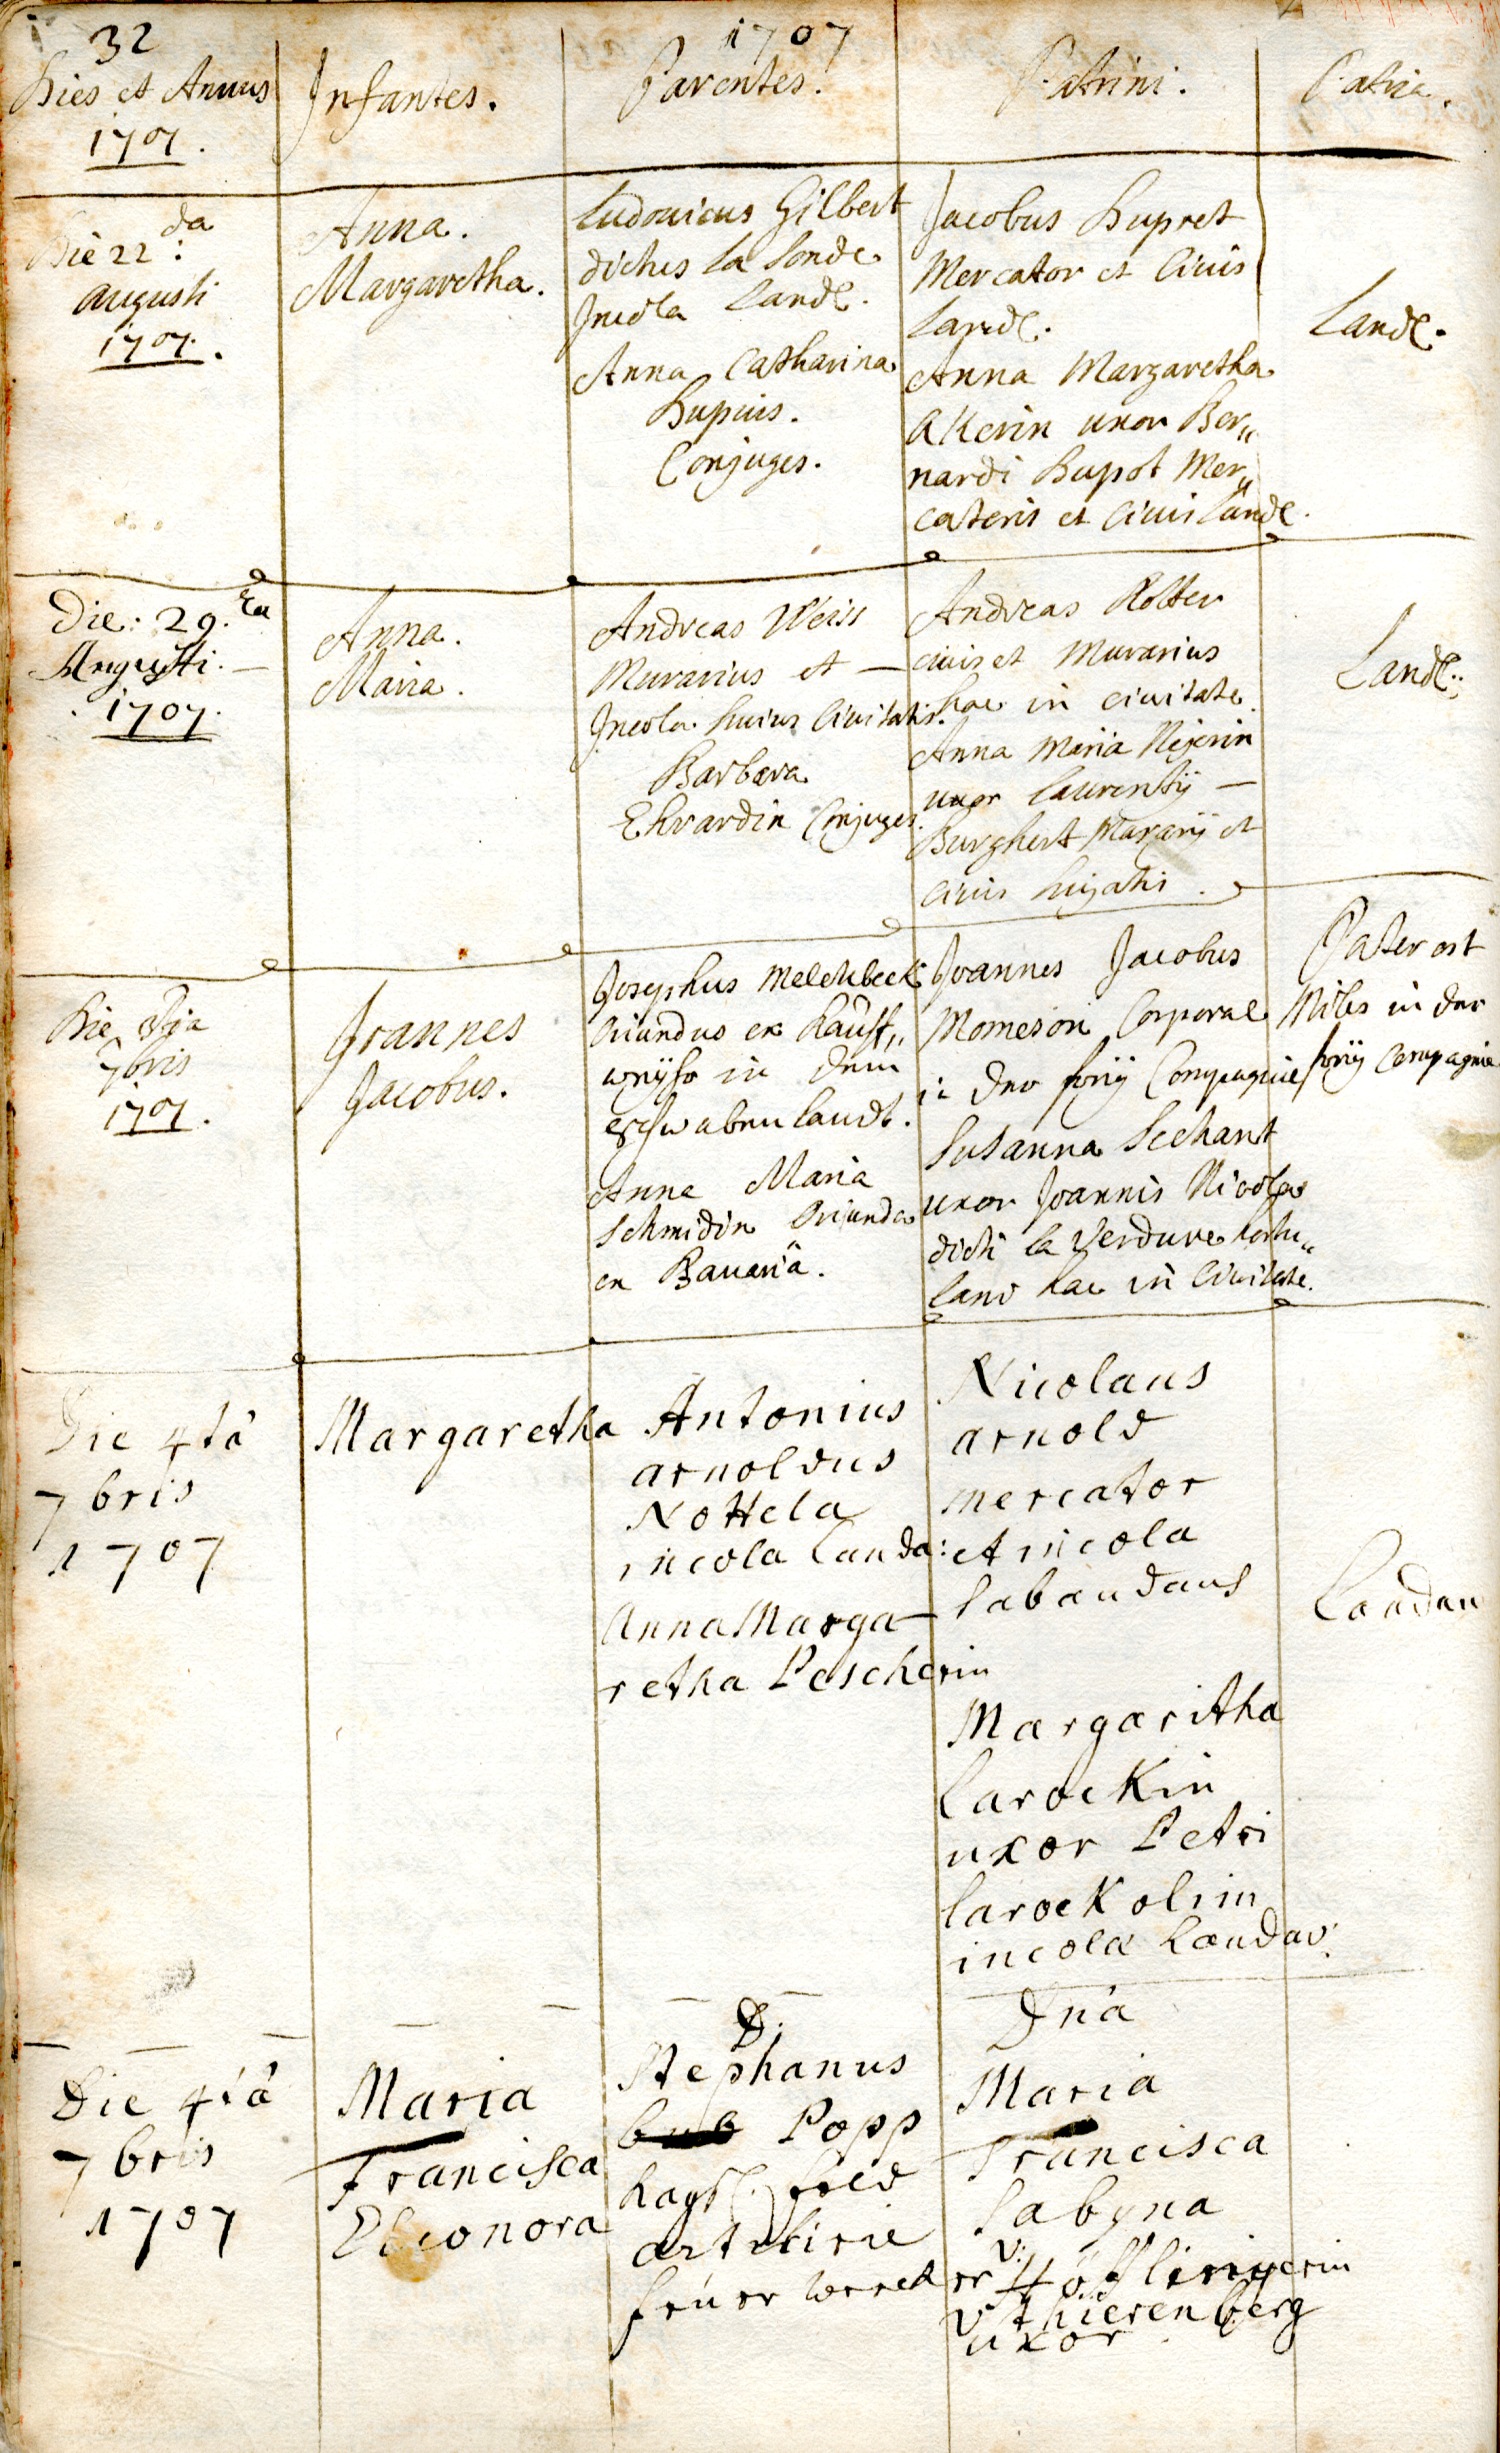 32
1707
Dies et Annus
1707.
Infantes.
Parentes.
Patrini.
Patria.
Die 22da:
Augusti
1707.
Anna.
Margaretha.
Ludovicus Gilbert
dictus la londe
Incola Land.
Anna Catharina
Dupuis.
Conjuges.
Jacobus Dupret
Mercator et Civis
Land.
Anna Margaretha
Akerin uxor Ber„
nardi Dupot Mer„
catoris et Civis Land.
Land.
Die: 29.
Augusti.
1707.
Anna.
Maria.
Andreas Weiss
Murarius et —
Incola huius Civitatis.
Barbara
Ehrardin Conjuges.
Andreas Rotter
civis et Murarius
hac in civitate.
Anna Maria
uxor Laurentij —
Burghert Murarij et
Civis hujatis.
Land:
Die 3tia
7bris
1707.
Joannes
Jacobus.
Josephus Melchbeck
Oriundus ex Kauff„
in dem
schwabenlandt.
Anna Maria
Schmidin Oriunda
ex Bavaria.
Joannes Jacobus
Momeson Corporal
in der freij Compagnie
Susanna Sechant
uxor Joannis Nicolas
dicti la Verdure hortu„
lani hac in Civitate.
Pater est
Miles in der
freij Compagnie
Die 4tâ
7bris
1707
Margaretha
Antonius
arnoldus
Nottela
incola Landa:
Anna Marga—
retha Pescherin
Nicolaus
arnold
mercator
et incola
labandaus
Margaritha
LarocKin
uxor Petri
larocK olim
incola Landav:
Landau
Die 4tâ
7bris
1707
Maria
Francisca
Eleonora
D.
Stephanus
Popp
feld
artilirie
feuer wercker
Dna
Maria
Francisca
Sabyna
v:
Höflingerin
v thierenberg
uxor